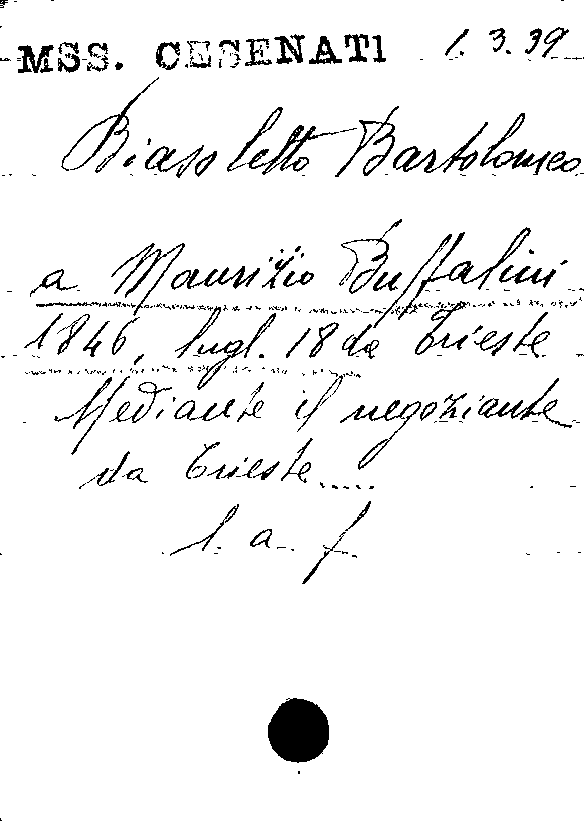 MSS. CESENATI 1.3.39
Biasoletto Bartolomeo
a Maurizio Buffalini
1846, lugl. 18 da Trieste
Mediante il negoziante
da Trieste.....
l. a. f.